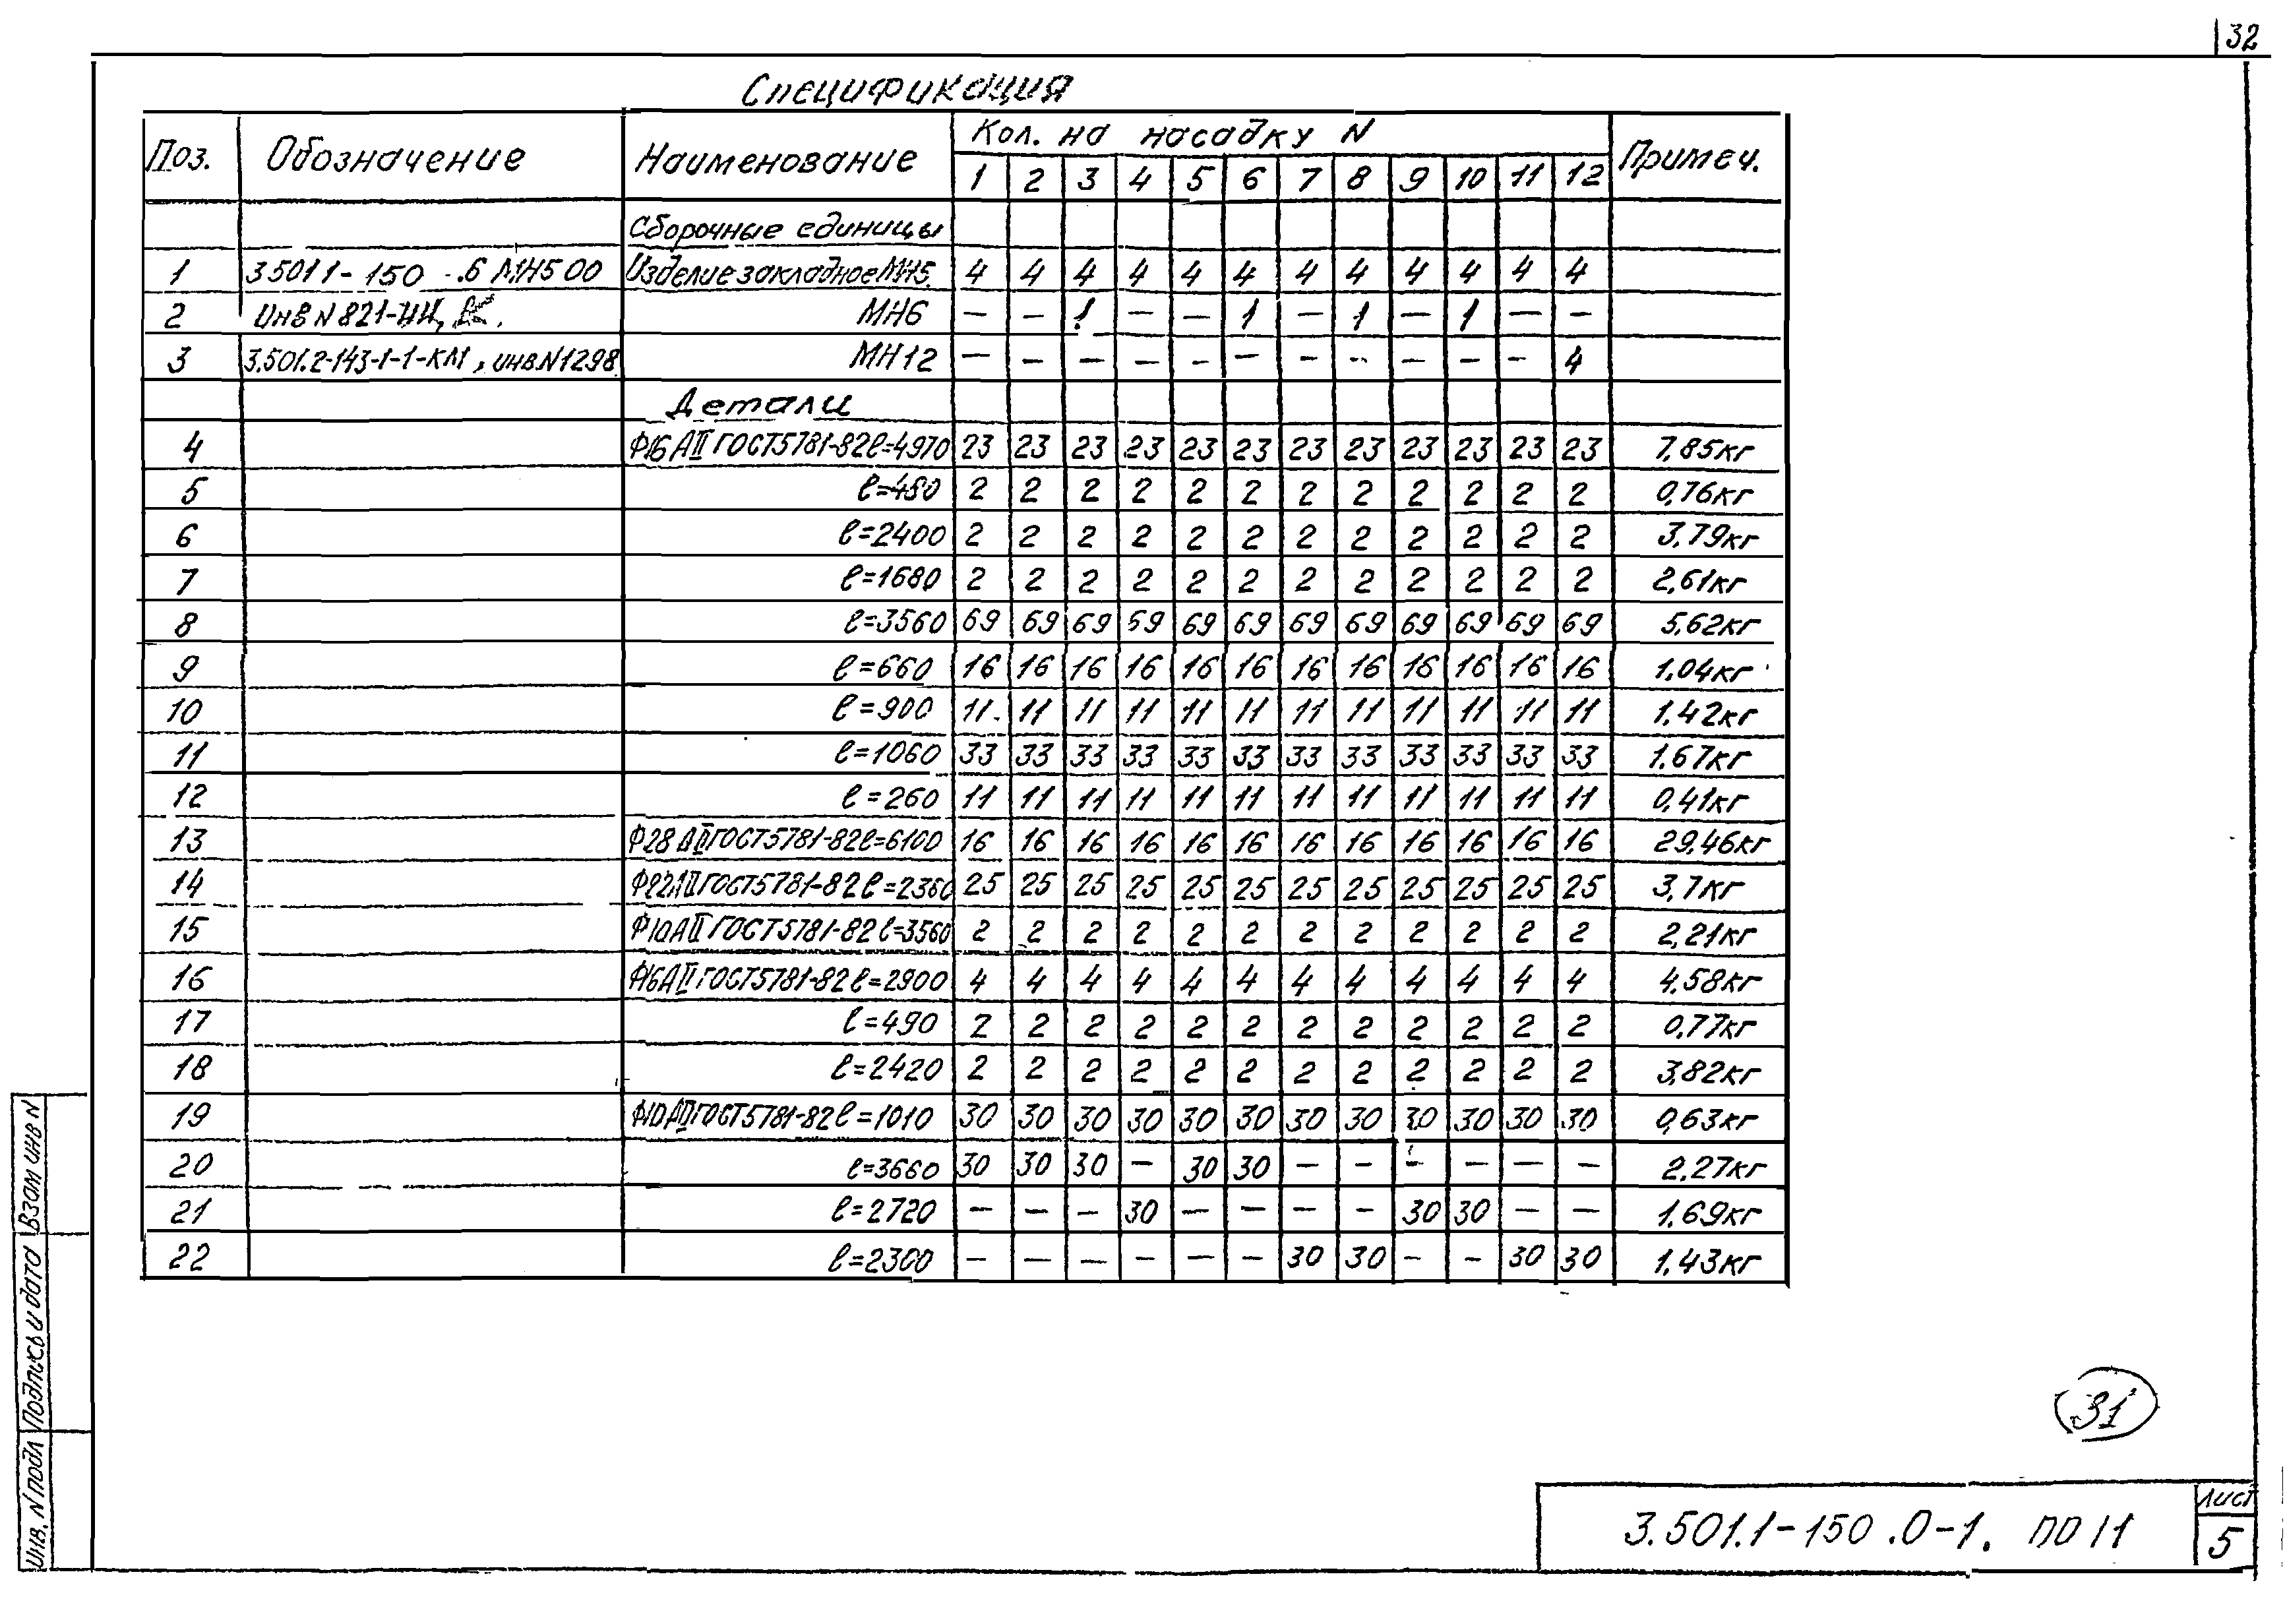 32
Спецификация
Поз. Обозначение Наименование Кол. на насадку N Примеч.
1 2 3 4 5 6 7 8 9 10 11 12
Сборочные единицы
1 3.501.1-150 -.6 МН5 00 Изделие закладное МН5 4 4 4 4 4 4 4 4 4 4 4 4
2 Инв N 821- МН6 — — 1 — — 1 — 1 — 1 — —
3 3.501.2-143-1-1-КМ, инв.N1298 МН12 — — — — — — — — — — — 4
Детали
4 Ф16 АII ГОСТ5781-82 ℓ=4970 23 23 23 23 23 23 23 23 23 23 23 23 7,85кг
5 ℓ=480 2 2 2 2 2 2 2 2 2 2 2 2 0,76кг
6 ℓ=2400 2 2 2 2 2 2 2 2 2 2 2 2 3,79кг
7 ℓ=1680 2 2 2 2 2 2 2 2 2 2 2 2 2,61кг
8 ℓ=3560 69 69 69 69 69 69 69 69 69 69 69 69 5,62кг
9 ℓ=660 16 16 16 16 16 16 16 16 16 16 16 16 1,04кг
10 ℓ=900 11 11 11 11 11 11 11 11 11 11 11 11 1,42кг
11 ℓ=1060 33 33 33 33 33 33 33 33 33 33 33 33 1,67кг
12 ℓ=260 11 11 11 11 11 11 11 11 11 11 11 11 0,41кг
13 Ф28 АII ГОСТ5781-82 ℓ=6100 16 16 16 16 16 16 16 16 16 16 16 16 29,46кг
14 Ф22АII ГОСТ5781-82 ℓ=2360 25 25 25 25 25 25 25 25 25 25 25 25 3,7кг
15 Ф10АII ГОСТ5781-82 ℓ=3560 2 2 2 2 2 2 2 2 2 2 2 2 2,21кг
16 Ф16АII ГОСТ5781-82 ℓ=2900 4 4 4 4 4 4 4 4 4 4 4 4 4,58кг
17 ℓ=490 2 2 2 2 2 2 2 2 2 2 2 2 0,77кг
18 ℓ=2420 2 2 2 2 2 2 2 2 2 2 2 2 3,82кг
19 Ф10АII ГОСТ5781-82 ℓ=1010 30 30 30 30 30 30 30 30 30 30 30 30 0,63кг
20 ℓ=3660 30 30 30 — 30 30 — — — — — — 2,27кг
21 ℓ=2720 — — — 30 — — — — 30 30 — — 1,69кг
22 ℓ=2300 — — — — — — 30 30 — — 30 30 1,43кг
31
3.501.1-150 .0-1. ПО 11
Лист
5
Инв. N подл Подпись и дата Взам инв N